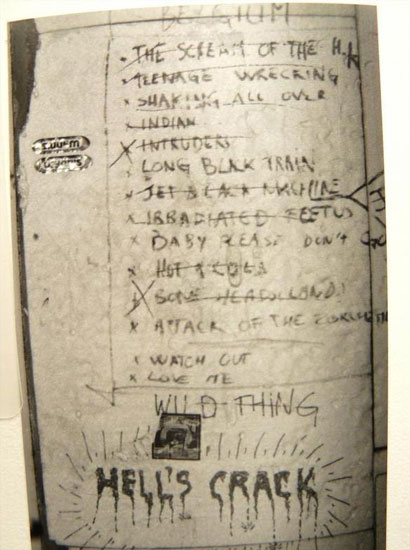 BELGIUM
THE SCREAM OF THE H.
TEENAGE WRECKING
SHAKING ALL OVER
INDIAN
INTRUDERS
LONG BLAK TRAIN
JET BLACK MACHINE
IRRADIATED FEETUS
BABY PLEASE DON'T GO
HOT & COLD
SOME
ATTACK OF THE
WATCH OUT
LOVE ME
WILD THING
HELL'S CRACK